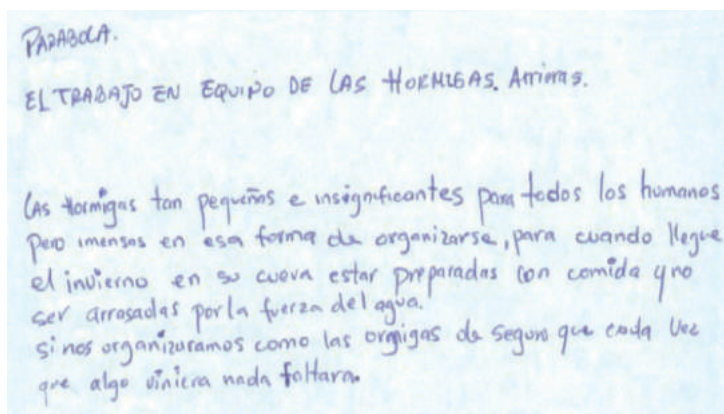 PARABOLA.
EL TRABAJO EN EQUIPO DE LAS HORMIGAS. Arrieras.
LAS Hormigas tan pequeñas e insignificantes para todos los humanos
Pero imensas en esa forma de organizarse, para cuando llegue
el invierno en su cueva estar preparadas con comida y no
ser arrasadas por la fuerza del agua.
si nos organizaramos como las ormigas de seguro que cada vez
que algo viniera nada faltara.